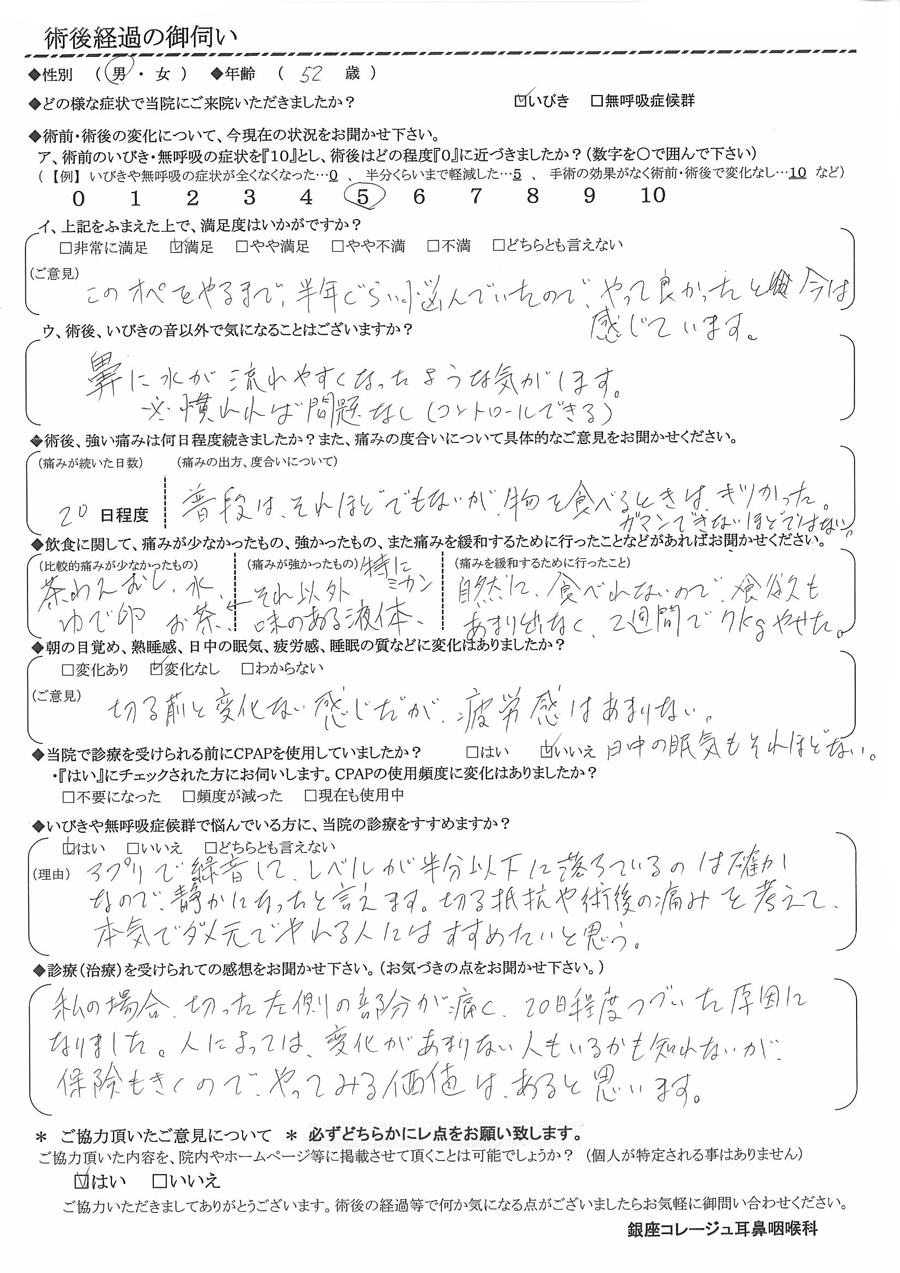 術後経過の御伺い
◆性別 （ 男 ・ 女 ） ◆年齢 （ 52 歳 ）
◆どの様な症状で当院にご来院いただきましたか？ ☑いびき □無呼吸症候群
◆術前・術後の変化について、今現在の状況をお聞かせ下さい。
ア、術前のいびき・無呼吸の症状を『10』とし、術後はどの程度『0』に近づきましたか？（数字を〇で囲んで下さい）
（【例】 いびきや無呼吸の症状が全くなくなった…0 、 半分くらいまで軽減した…5 、 手術の効果がなく術前・術後で変化なし…10 など）
0 1 2 3 4 5 6 7 8 9 10
イ、上記をふまえた上で、満足度はいかがですか？
□非常に満足 ☑満足 □やや満足 □やや不満 □不満 □どちらとも言えない
（ご意見）
このオペをやるまで、半年ぐらい悩んでいたので、やって良かったと 今は
感じています。
ウ、術後、いびきの音以外で気になることはございますか？
鼻に水が流れやすくなったような気がします。
※慣れれば問題なし（コントロールできる）
◆術後、強い痛みは何日程度続きましたか？また、痛みの度合いについて具体的なご意見をお聞かせください。
（痛みが続いた日数） （痛みの出方、度合いについて）
普段は、それほどでもないが、物を食べるときは、キツかった。
20 日程度 ガマンできないほどではない。
◆飲食に関して、痛みが少なかったもの、強かったもの、また痛みを緩和するために行ったことなどがあればお聞かせください。
（比較的痛みが少なかったもの） （痛みが強かったもの） 特に （痛みを緩和するために行ったこと）
茶わんむし、水、 それ以外 ミカン 自然に、食べれないので、食欲も
ゆで卵 お茶、 ← 味のある液体、 あまり出なく、2週間で7kgやせた。
◆朝の目覚め、熟睡感、日中の眠気、疲労感、睡眠の質などに変化はありましたか？
□変化あり ☑変化なし □わからない
（ご意見）
切る前と変化ない感じだが、疲労感はあまりない。
◆当院で診療を受けられる前にCPAPを使用していましたか？ □はい ☑いいえ 日中の眠気もそれほどない。
・『はい』にチェックされた方にお伺いします。CPAPの使用頻度に変化はありましたか？
□不要になった □頻度が減った □現在も使用中
◆いびきや無呼吸症候群で悩んでいる方に、当院の診療をすすめますか？
☑はい □いいえ □どちらとも言えない
（理由） アプリで録音して、レベルが半分以下に落ちているのは確か
なので、静かになったと言えます。切る抵抗や術後の痛みを考えて、
本気でダメ元でやれる人にはすすめたいと思う。
◆診療（治療）を受けられての感想をお聞かせ下さい。（お気づきの点をお聞かせ下さい。）
私の場合、切った左側の部分が痛く、20日程度つづいた原因に
なりました。人によっては、変化があまりない人もいるかも知れないが、
保険もきくので、やってみる価値は、あると思います。
＊ ご協力頂いたご意見について ＊ 必ずどちらかにレ点をお願い致します。
ご協力頂いた内容を、院内やホームページ等に掲載させて頂くことは可能でしょうか？ （個人が特定される事はありません）
☑はい □いいえ
ご協力いただきましてありがとうございます。術後の経過等で何か気になる点がございましたらお気軽に御問い合わせください。
銀座コレージュ耳鼻咽喉科